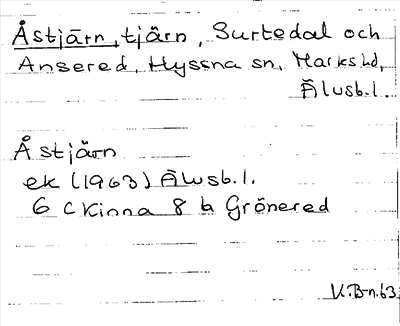 Åstjärn, tjärn, Surtedal och
Ansered, Hyssna sn, Marks hd,
Älvsb. l.
Åstjärn
ek (1963) Älvsb. l.
6 C Kinna 8 b Grönered
V.B-n.63